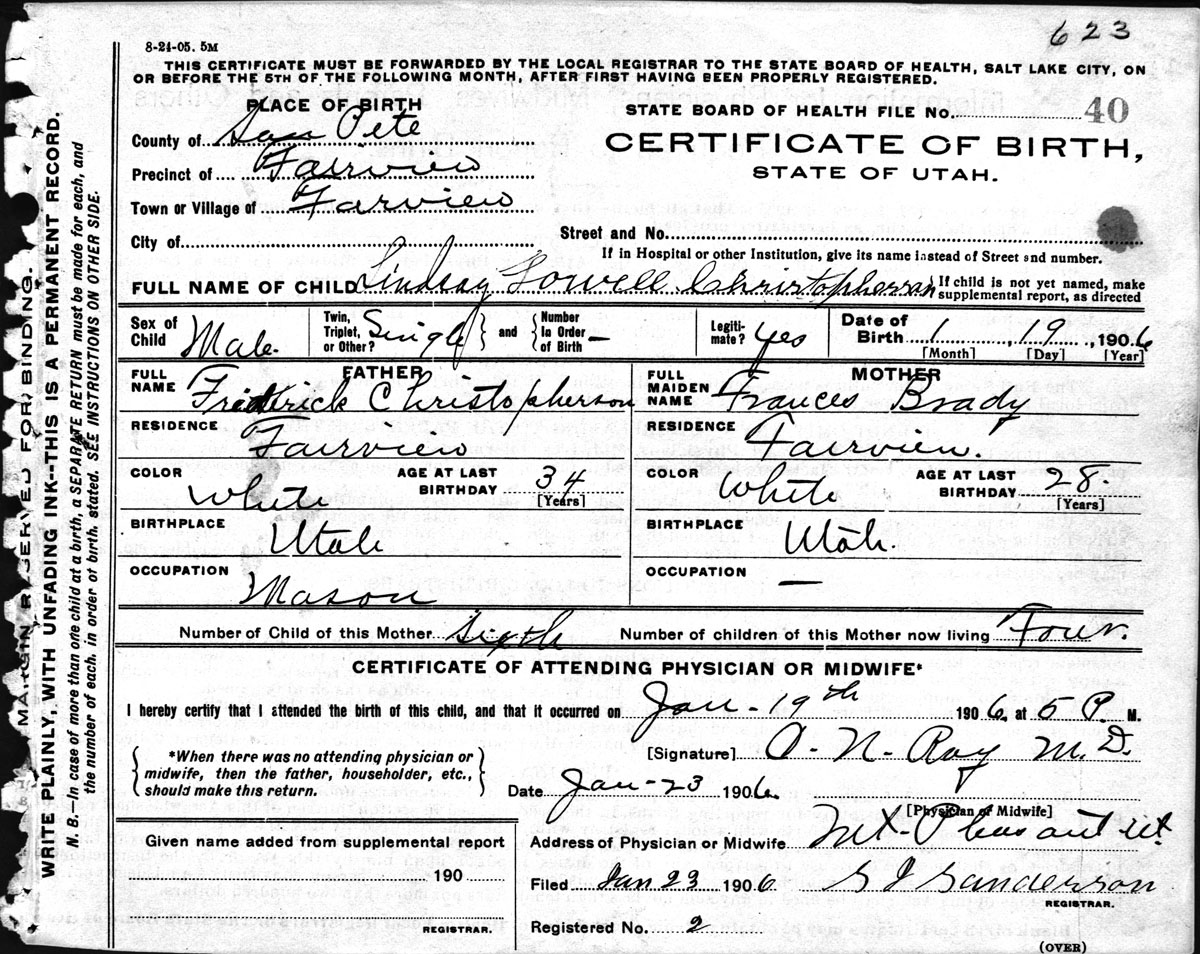 623
8-24-05. 5M
THIS CERTIFICATE MUST BE FORWARDED BY THE LOCAL REGISTRAR TO THE STATE BOARD OF HEALTH, SALT LAKE CITY, ON
OR BEFORE THE 5TH OF THE FOLLOWING MONTH, AFTER FIRST HAVING BEEN PROPERLY REGISTERED.
PLACE OF BIRTH
STATE BOARD OF HEALTH FILE No. 40
County of San Pete
CERTIFICATE OF BIRTH,
STATE OF UTAH.
Precinct of Fairview
Town or Village of Farview
City of
Street and No.
If in Hospital or other Institution, give its name instead of Street and number.
FULL NAME OF CHILD Lindsay Lowell Christopherson } If child is not yet named, make
supplemental report, as directed
Sex of Child Male. Twin, Triplet, or Other? Single } and { Number In Order of Birth – Legiti- mate? Yes Date of Birth 1, 19, 1906
[Month] [Day] [Year]
FATHER
MOTHER
FULL NAME Fredrick Christopherson
FULL MAIDEN NAME Frances Brady
RESIDENCE Fairview
RESIDENCE Fairview.
COLOR White AGE AT LAST BIRTHDAY 34 [Years]
COLOR White AGE AT LAST BIRTHDAY 28. [Years]
BIRTHPLACE Utah
BIRTHPLACE Utah.
OCCUPATION Mason
OCCUPATION –
Number of Child of this Mother Sixth Number of children of this Mother now living Four.
CERTIFICATE OF ATTENDING PHYSICIAN OR MIDWIFE*
I hereby certify that I attended the birth of this child, and that it occurred on Jan - 19th 1906. at 5 P. M.
*When there was no attending physician or
midwife, then the father, householder, etc.,
should make this return.
[Signature] A. N. Ray M.D.
Date Jan-23 1906.
[Physician or Midwife]
Given name added from supplemental report
190
REGISTRAR.
Address of Physician or Midwife Mt-Pleasant Ut.
Filed Jan 23 1906 S J Sanderson
REGISTRAR.
Registered No. 2
(OVER)
MARGIN RESERVED FOR BINDING.
WRITE PLAINLY, WITH UNFADING INK--THIS IS A PERMANENT RECORD.
N. B.—In case of more than one child at a birth, a SEPARATE RETURN must be made for each, and
the number of each, in order of birth, stated. SEE INSTRUCTIONS ON OTHER SIDE.